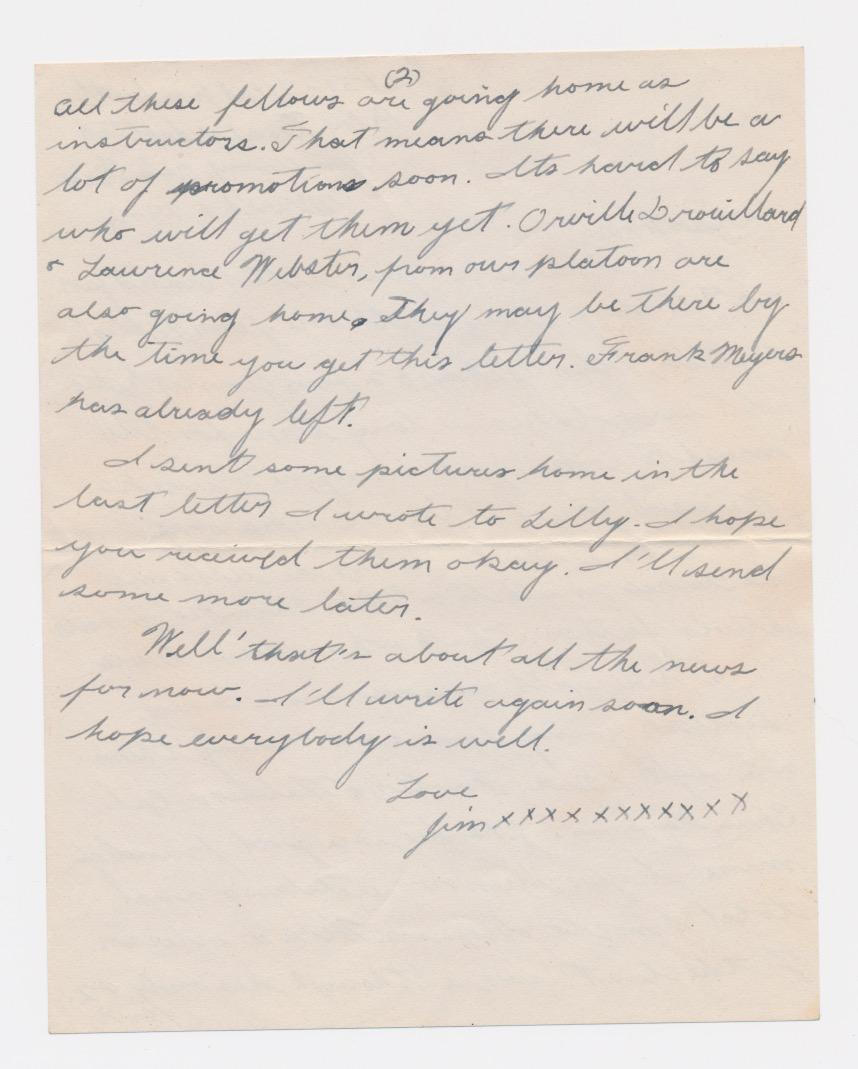 (2)
All these fellows are going home as
instructors. That means there will be a
lot of promotions soon. Its hard to say
who will get them yet. Orville Drouillard
& Lawrence Webster, from our platoon are
also going home. They may be there by
the time you get this letter. Frank Meyers
has already left.
I sent some pictures home in the
last letter I wrote to Lilly. I hope
you received them okay. I'll send
some more later.
Well' that's about all the news
for now. I'll write again soon. I
hope everybody is well.
Love
Jim xxxx xxxxxxxx